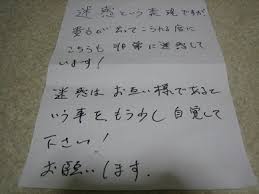 迷惑という表現ですが
こちらも非常に迷惑して
います!
迷惑はお互い様であると
いう事を、もう少し自覚して
下さい!
お願いします。